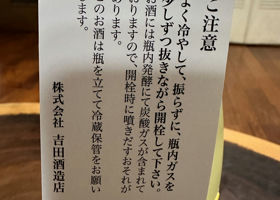 ご注意
よく冷やして、振らずに、瓶内ガスを
少しずつ抜きながら開栓して下さい。
お酒には瓶内発酵にて炭酸ガスが含まれて
おりますので、開栓時に噴きだすおそれが
あります。
このお酒は瓶を立てて冷蔵保管をお願い
します。
株式会社 吉田酒造店